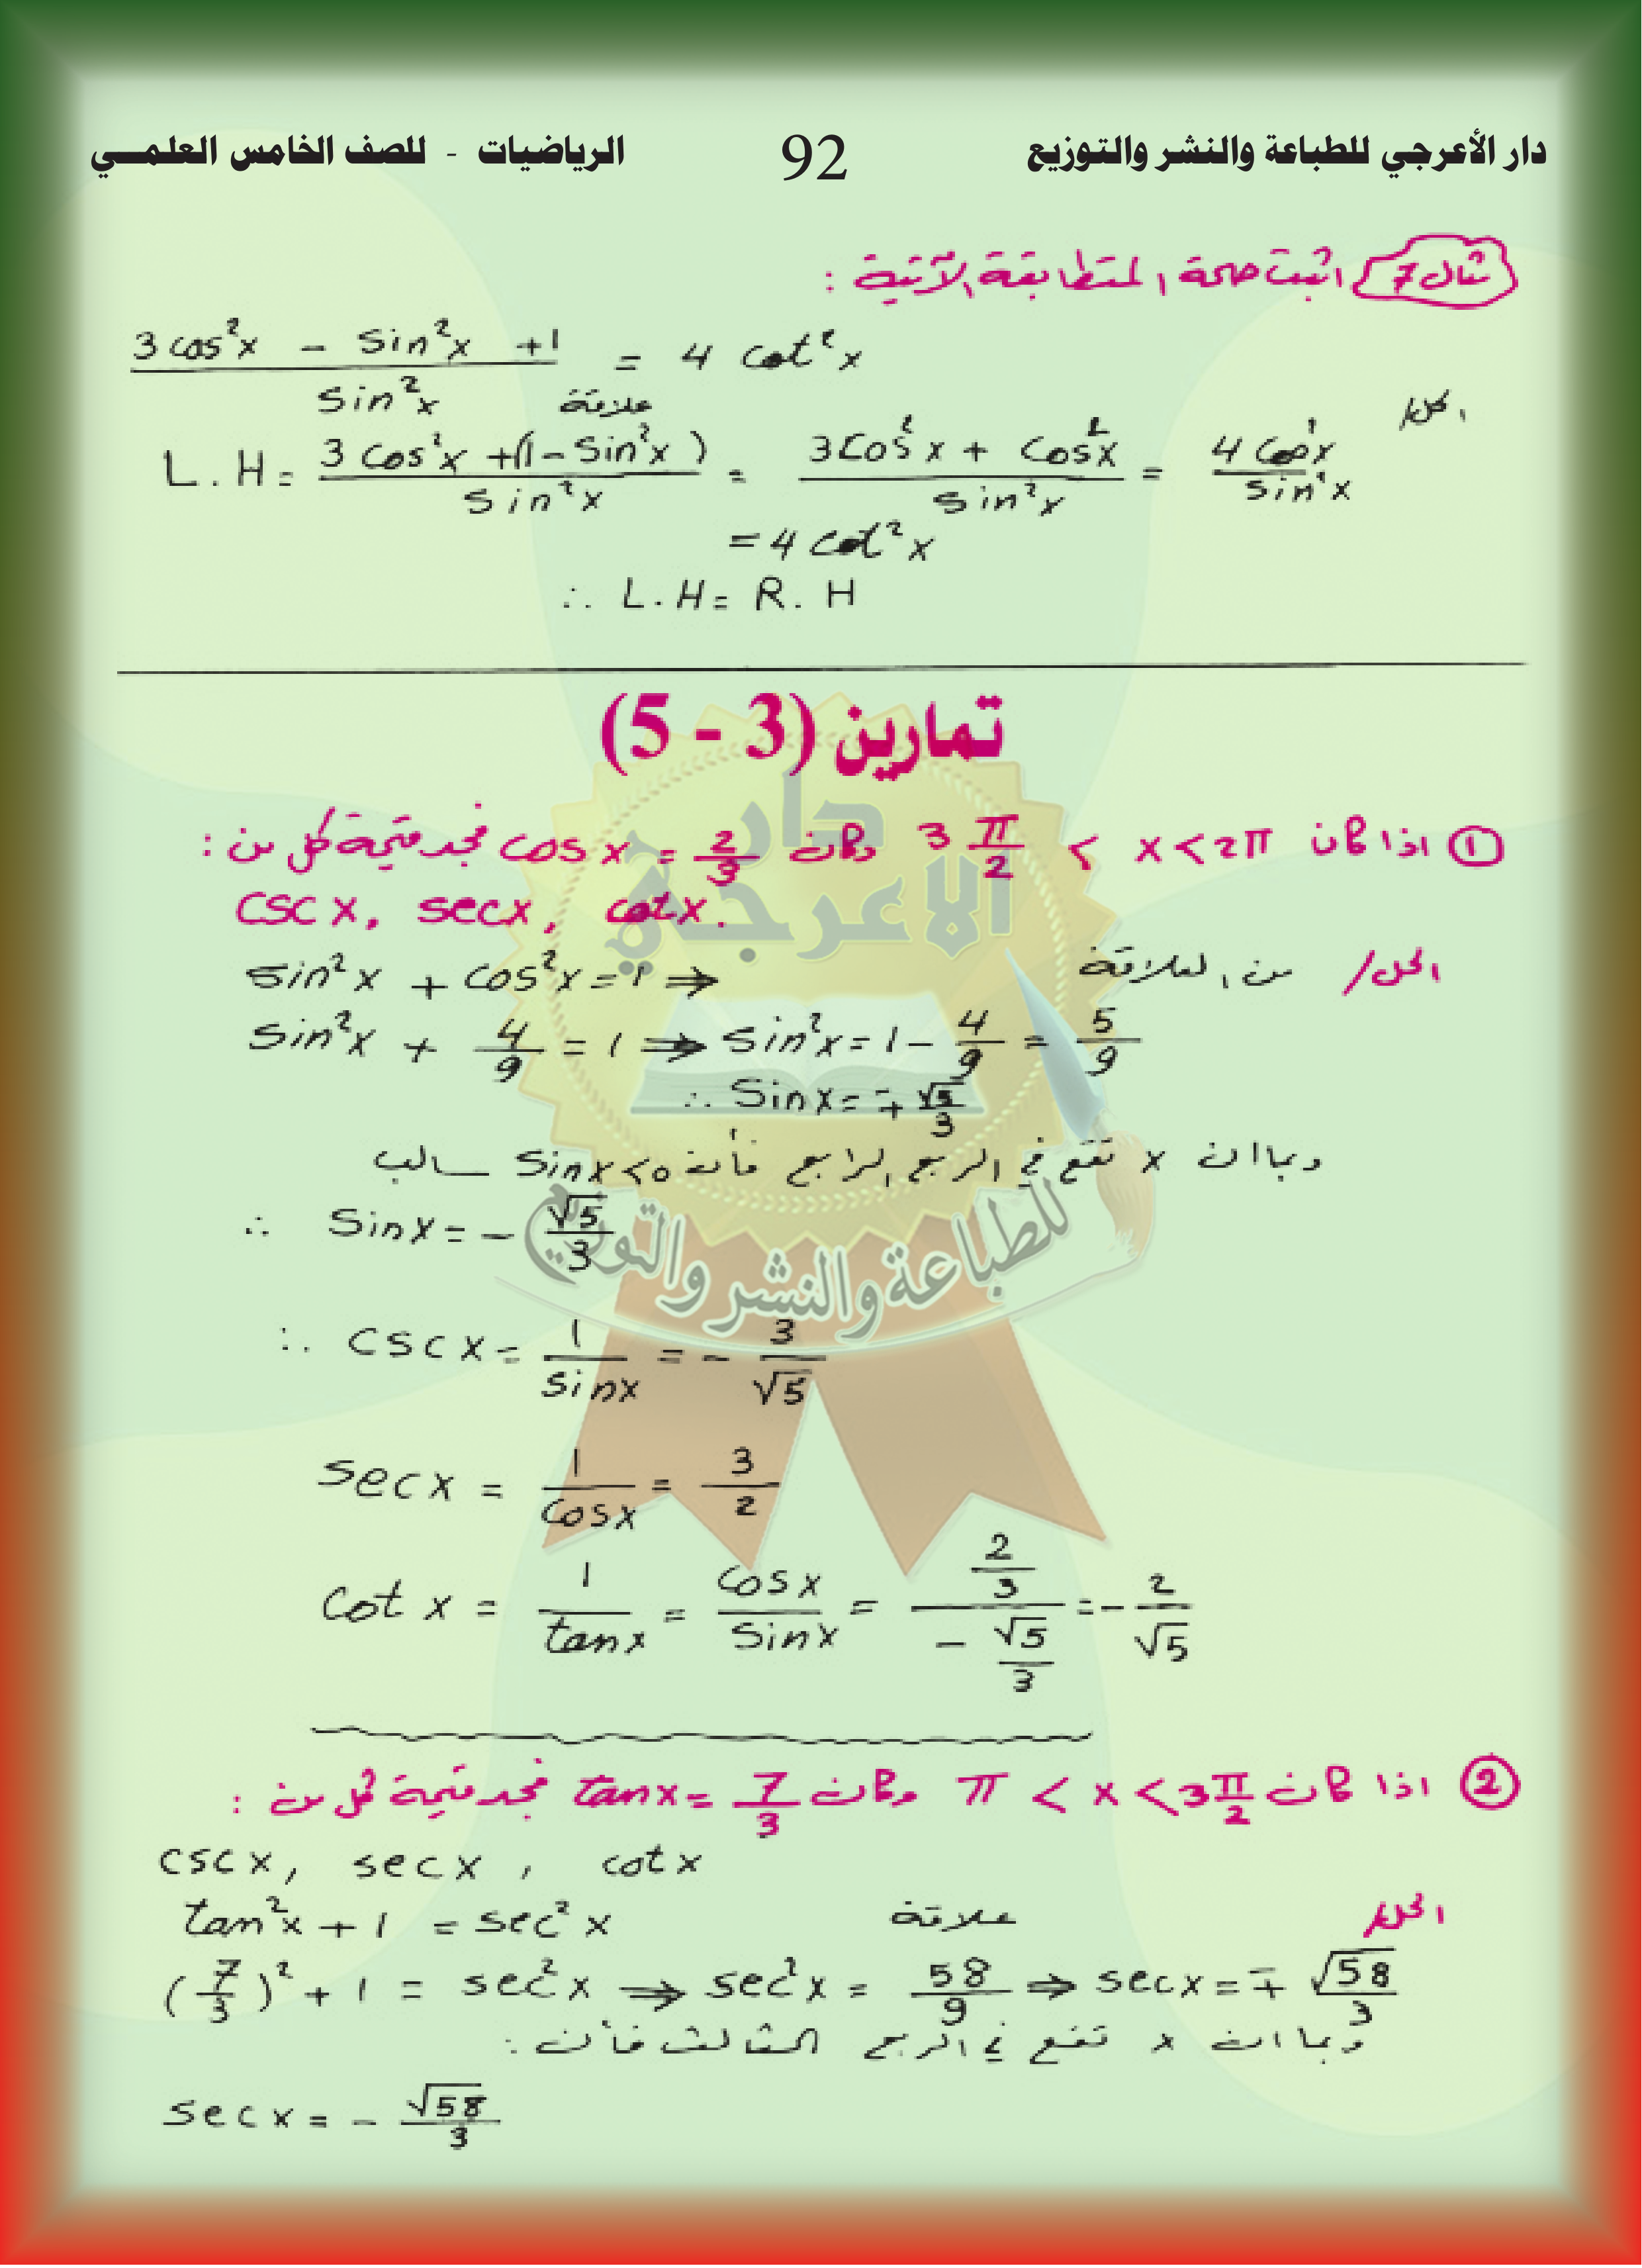 دار الأعرجي للطباعة والنشر والتوزيع 92 الرياضيات - للصف الخامس العلمي
مثال 7 اثبت صحة المتطابقة الآتية :
(3cos²x - sin²x + 1) / sin²x = 4 cot²x
الحل/
علاقة
L.H = (3cos²x + (1 - sin²x)) / sin²x = (3cos²x + cos²x) / sin²x = 4cos²x / sin²x
= 4 cot²x
∴ L.H = R.H
تمارين (3 - 5)
① اذا كان 3 π/2 < x < 2π وكان cos x = 2/3 فجد قيمة كل من :
csc x, sec x, cot x.
الحل/ من العلاقة sin²x + cos²x = 1 ⇒
sin²x + 4/9 = 1 ⇒ sin²x = 1 - 4/9 = 5/9
∴ sin x = ∓ √5/3
وبما ان x تقع في الربع الرابع فأن sin x < 0 سالب
∴ sin x = - √5/3
∴ csc x = 1/sin x = - 3/√5
sec x = 1/cos x = 3/2
cot x = 1/tan x = cos x/sin x = (2/3)/(-√5/3) = - 2/√5
② اذا كان π < x < 3π/2 وكان tan x = 7/3 فجد قيمة كل من :
csc x, sec x, cot x
الحل/ علاقة tan²x + 1 = sec²x
(7/3)² + 1 = sec²x ⇒ sec²x = 58/9 ⇒ sec x = ∓ √58/3
وبما ان x تقع في الربع الثالث فأن :
sec x = - √58/3
دار
الاعرجي
للطباعة والنشر والتوزيع